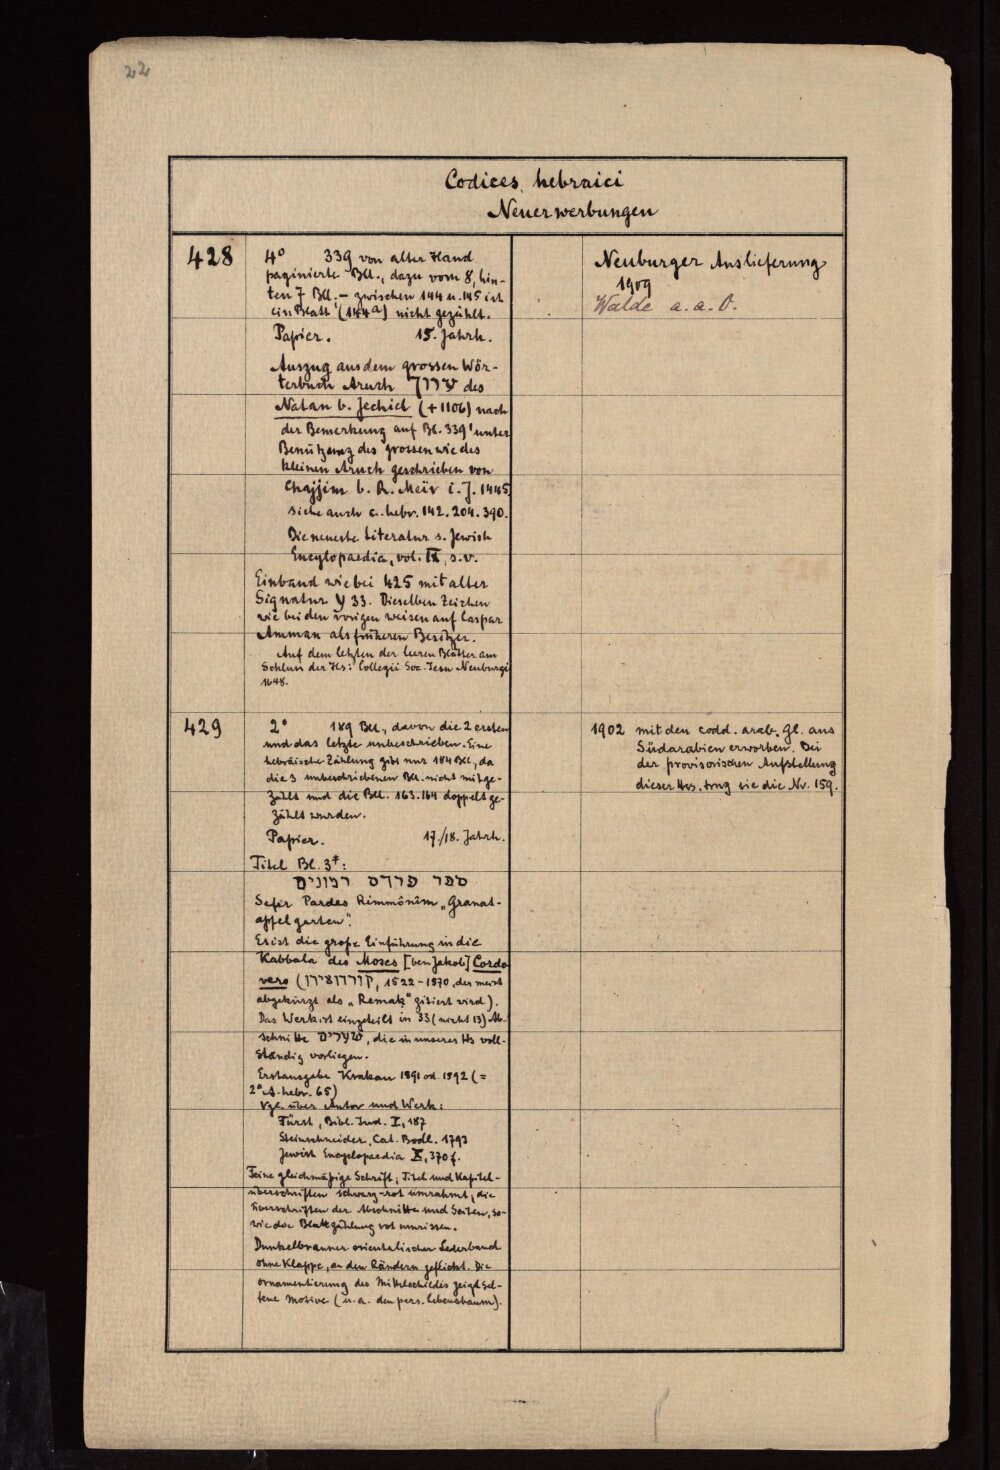 22
Codices hebraici
Neuerwerbungen
428
4° 339 von alter Hand
paginierte Bll., dazu vorn 8, hin-
ten 7 Bll. – zwischen 144 u. 145 ist
ein Blatt (144a) nicht gezählt.
Papier. 15. Jahrh.
Auszug aus dem grossen Wör-
terbuch Aruch ערוך des
Natan b. Jechiel (+1106) nach
der Bemerkung auf Bl. 339' unter
Benützung des grossen wie des
kleinen Aruch geschrieben von
Chajjim b. R. Meïr i. J. 1445
siehe auch c. hebr. 142. 204. 390.
Die neueste Literatur s. Jewish
Encylopaedia, vol. IX, s. v.
Einband wie bei 425 mit alter
Signatur Y 33. Dieselben Zeichen
wie bei den vorigen weisen auf Caspar
Amman als früheren Besitzer.
Auf dem letzten der leeren Blätter am
Schluss der Hs: Collegii Soc. Jesu Neuburgi
1648.
Neuburger Auslieferung
1909
Walde a. a. O.
429
2° 189 Bll., davon die 2 ersten
und das letzte unbeschrieben. Eine
hebräische Zählung gibt nur 184 Bll., da
die 3 unbeschriebenen Bll. nicht mitge-
zählt und die Bll. 163. 164 doppelt ge-
zählt wurden.
Papier. 17./18. Jahrh.
Titel Bl. 3r:
ספר פרדס רמונים
Sefer Pardes Rimmônîm „Granat-
apfelgarten".
Es ist die große Einführung in die
Kabbala des Moses [ben Jakob] Cordo
vero (קורדועירו, 1522–1570, der meist
abgekürzt als „Remak" zitiert wird).
Das Werk ist eingeteilt in 33 (nicht 13) Ab-
schnitte שערים, die in unserer Hs voll-
ständig vorliegen.
Erstausgabe Krakau 1591 od. 1592 (=
2° A. hebr. 65)
Vgl. über Autor und Werk:
Fürst, Bibl. Jud. I, 187
Steinschneider, Cat. Bodl. 1793
Jewish Encyclopaedia X, 370f.
Feine gleichmäßige Schrift; Titel und Kapitel-
überschriften schwarz-rot umrahmt; die
Überschriften der Abschnitte und Seiten, so-
wie die Blattzählung rot umrissen.
Dunkelbrauner orientalischer Lederband
ohne Klappe, an den Rändern geflickt. Die
Ornamentierung des Mittelschildes zeigt sel-
tene Motive (u. a. den pers. Lebensbaum).
1902 mit den codd. arab. Gl. aus
Südarabien erworben. Bei
der provisorischen Aufstellung
dieser Hss. trug sie die Nr. 159.